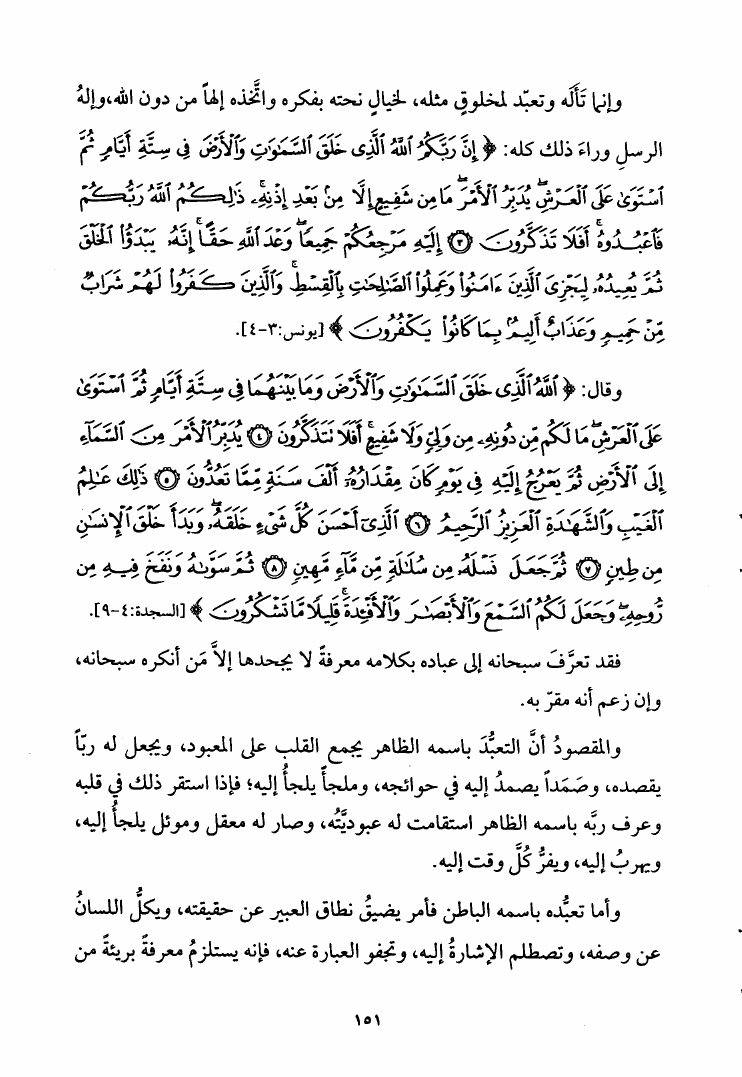 وإنما تَأَلَّه وتعبّد لمخلوقٍ مثله، لخيالٍ نحته بفكره واتَّخذه إلهاً من دون الله، وإلهُ
الرسلِ وراءَ ذلك كله: ﴿ إِنَّ رَبَّكُمُ ٱللَّهُ ٱلَّذِى خَلَقَ ٱلسَّمَٰوَٰتِ وَٱلْأَرْضَ فِى سِتَّةِ أَيَّامٍ ثُمَّ
ٱسْتَوَىٰ عَلَى ٱلْعَرْشِۖ يُدَبِّرُ ٱلْأَمْرَۖ مَا مِن شَفِيعٍ إِلَّا مِنۢ بَعْدِ إِذْنِهِۦۚ ذَٰلِكُمُ ٱللَّهُ رَبُّكُمْ
فَٱعْبُدُوهُۚ أَفَلَا تَذَكَّرُونَ ٣ إِلَيْهِ مَرْجِعُكُمْ جَمِيعًاۖ وَعْدَ ٱللَّهِ حَقًّاۚ إِنَّهُۥ يَبْدَؤُا۟ ٱلْخَلْقَ
ثُمَّ يُعِيدُهُۥ لِيَجْزِىَ ٱلَّذِينَ ءَامَنُوا۟ وَعَمِلُوا۟ ٱلصَّٰلِحَٰتِ بِٱلْقِسْطِۚ وَٱلَّذِينَ كَفَرُوا۟ لَهُمْ شَرَابٌ
مِّنْ حَمِيمٍ وَعَذَابٌ أَلِيمٌۢ بِمَا كَانُوا۟ يَكْفُرُونَ ﴾ [يونس:٣-٤].
وقال: ﴿ ٱللَّهُ ٱلَّذِى خَلَقَ ٱلسَّمَٰوَٰتِ وَٱلْأَرْضَ وَمَا بَيْنَهُمَا فِى سِتَّةِ أَيَّامٍ ثُمَّ ٱسْتَوَىٰ
عَلَى ٱلْعَرْشِۖ مَا لَكُم مِّن دُونِهِۦ مِن وَلِىٍّ وَلَا شَفِيعٍۚ أَفَلَا تَتَذَكَّرُونَ ٤ يُدَبِّرُ ٱلْأَمْرَ مِنَ ٱلسَّمَآءِ
إِلَى ٱلْأَرْضِ ثُمَّ يَعْرُجُ إِلَيْهِ فِى يَوْمٍ كَانَ مِقْدَارُهُۥٓ أَلْفَ سَنَةٍ مِّمَّا تَعُدُّونَ ٥ ذَٰلِكَ عَٰلِمُ
ٱلْغَيْبِ وَٱلشَّهَٰدَةِ ٱلْعَزِيزُ ٱلرَّحِيمُ ٦ ٱلَّذِىٓ أَحْسَنَ كُلَّ شَىْءٍ خَلَقَهُۥۖ وَبَدَأَ خَلْقَ ٱلْإِنسَٰنِ
مِن طِينٍ ٧ ثُمَّ جَعَلَ نَسْلَهُۥ مِن سُلَٰلَةٍ مِّن مَّآءٍ مَّهِينٍ ٨ ثُمَّ سَوَّىٰهُ وَنَفَخَ فِيهِ مِن
رُّوحِهِۦۖ وَجَعَلَ لَكُمُ ٱلسَّمْعَ وَٱلْأَبْصَٰرَ وَٱلْأَفْـِٔدَةَۚ قَلِيلًا مَّا تَشْكُرُونَ ﴾ [السجدة:٤-٩].
فقد تعرَّفَ سبحانه إلى عباده بكلامه معرفةً لا يجحدها إلاَّ مَن أنكره سبحانه،
وإن زعم أنه مقرّ به.
والمقصودُ أنَّ التعبُّدَ باسمه الظاهر يجمع القلب على المعبود، ويجعل له ربّاً
يقصده، وصَمَداً يصمدُ إليه في حوائجه، وملجأً يلجأُ إليه؛ فإذا استقر ذلك في قلبه
وعرف ربَّه باسمه الظاهر استقامت له عبوديَّتُه، وصار له معقل وموئل يلجأُ إليه،
ويهربُ إليه، ويفرُّ كُلَّ وقت إليه.
وأما تعبُّده باسمه الباطن فأمر يضيقُ نطاق العبير عن حقيقته، ويكلُّ اللسانُ
عن وصفه، وتصطلم الإشارةُ إليه، وتجفو العبارة عنه، فإنه يستلزمُ معرفةً بريئةً من
١٥١